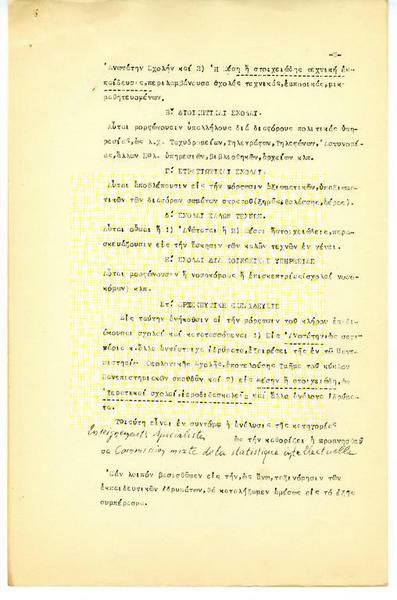 -8-
Ἀνωτάτην Σχολήν καί 2) Ἡ Μέση ἤ στοιχειώδης τεχνική ἐκ-
παίδευσις, περιλαμβάνουσα σχολάς τεχνικάς, ἐμπορικάς, μικ-
μαθητευομένων.
Β' ΔΙΟΙΚΗΤΙΚΑΙ ΣΧΟΛΑΙ.
Αὗται μορφώνουσιν ὑπαλλήλους διά διαφόρους πολιτικάς ὑπη-
ρεσίας, ὡς λ.χ. Ταχυδρομείων, Τηλεγράφων, Τηλεφώνων, Ἀστυνομί-
ας, ἄλλων ὑπηρεσιῶν, βιβλιοθηκῶν, ἀρχείων κλπ.
Γ' ΣΤΡΑΤΙΩΤΙΚΑΙ ΣΧΟΛΑΙ.
Αὗται ἀποβλέπουσιν εἰς τήν μόρφωσιν ἀξιωματικῶν, ὑπαξιωμα-
τικῶν τῶν διαφόρων σωμάτων στρατοῦ (ξηρᾶς, θαλάσσης, ἀέρος).
Δ' ΣΧΟΛΑΙ ΚΑΛΩΝ ΤΕΧΝΩΝ.
Αὗται οὖσαι ἤ 1) Ἀνώταται ἤ 2) Μέσαι ἤ στοιχειώδεις, παρα-
σκευάζουσιν εἰς τήν ἄσκησιν τῶν καλῶν τεχνῶν ἐν γένει.
Ε' ΣΧΟΛΑΙ ΔΙΑ ΚΟΙΝΩΝΙΚΗΝ ΥΠΗΡΕΣΙΑΝ
Αὗται μορφώνουσιν ἤ νοσοκόμους ἤ ἐπισκεπτρίας (σχολαί νοσο-
κόμων) κλπ.
ΣΤ' ΘΡΗΣΚΕΥΤΙΚΗ ΕΚΠΑΙΔΕΥΣΙΣ
Εἰς ταύτην ἀνήκουσιν αἱ τήν μόρφωσιν τοῦ κλήρου ἐπιδι-
ώκουσαι σχολαί καί κατατασσόμεναι 1) Εἰς Ἀνωτάτην ὡς σεμι-
νάρια κ. ἄλλα ἀντίστοιχα ἱδρύματα, ἐξαιρέσει τῆς ἐν τῷ Πανε-
πιστημίῳ Θεολογικῆς Σχολῆς, ἀποτελούσης Τμῆμα τοῦ κύκλου
Πανεπιστημιακῶν σπουδῶν καί 2) εἰς μέσην ἤ στοιχειώδη, ὡς
ἱερατικαί σχολαί, ἱεροδιδασκαλεῖα καί ἄλλα ἀνάλογα ἱδρύμα-
τα.
Τοιαύτη εἶναι ἐν συντόμῳ ἡ ἀνάλυσις τῆς κατηγορίας
Enseignements Spécialisés ὡς τήν καθορίζει ἡ προμνησθεῖ-
σα Commission mixte de la statistique intellectuelle
Ἐάν λοιπόν βασισθῶμεν εἰς τήν, ὡς ἄνω, ταξινόμησιν τῶν
ἐκπαιδευτικῶν ἱδρυμάτων, θά καταλήξωμεν ἀμέσως εἰς τό ἑξῆς
συμπέρασμα.